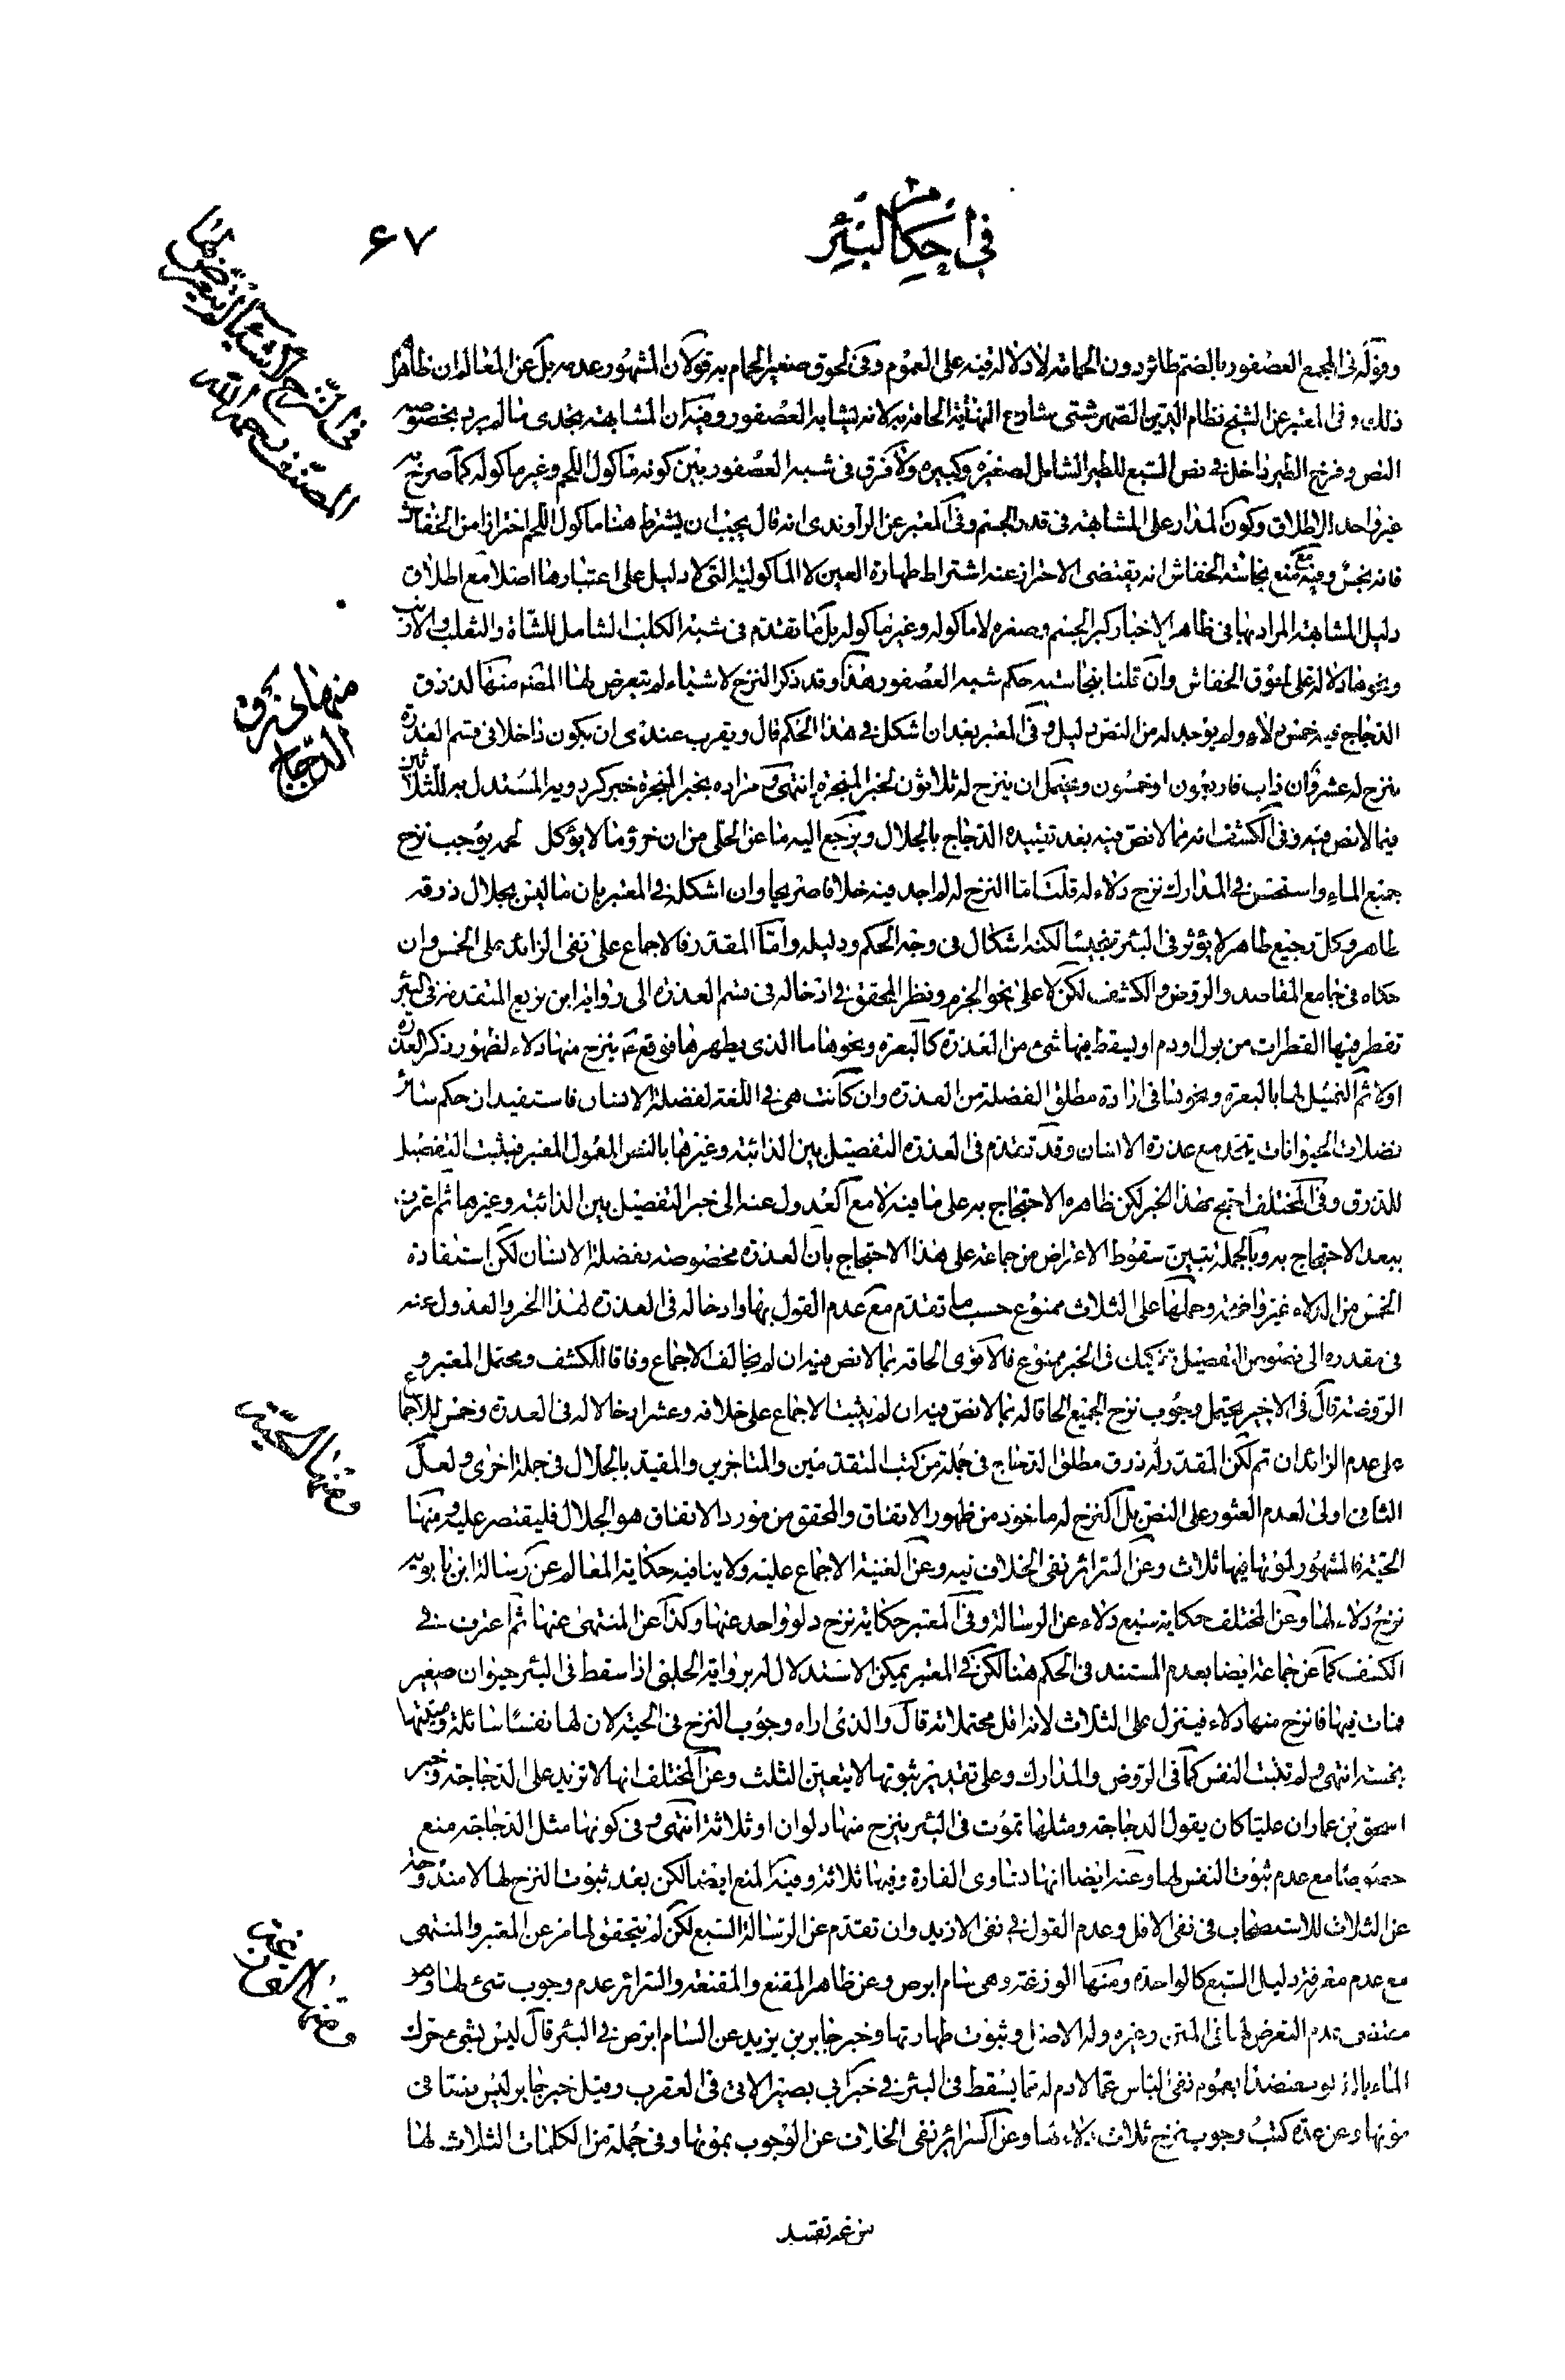 في احكام البئر
۶۷
في النزح لأشياء لم يتعرض لها
المصنف رحمه الله
وقوله في المجمع العصفور بالضم طائر دون الحمامة لا دلالة فيه على العموم وفي لحوق صغير الحمام به قولان المشهور عدمه بل عن المعالم ان ظاهر
ذلك وفي المعتبر عن الشيخ نظام الدين الصهرشتي شارح النهاية الحاقه به لانه يشابه العصفور وفيه ان المشابهة يجدى ما لم يرد بخصوصه
النص وفرخ الطير داخل في نص السبع للطير الشامل لصغيره وكبيره ولا فرق في شبه العصفور بين كونه مأكول اللحم وغير مأكوله كما صرح به
غير واحد للاطلاق وكون المدار على المشابهة في قدر الجسم وفي المعتبر عن الراوندى انه قال يجب ان يشترط هنا مأكول اللحم احترازا من الخفاش
فانه نجس وفيه مع منع نجاسة الخفاش انه يقتضى الاحتراز عنه اشتراط طهارة العين لا المأكولية التي لا دليل على اعتبارها اصلا مع اطلاق
دليل المشابهة المراد بها في ظاهر الاخبار كبر الجسم وصغره لا مأكوله وغير مأكوله بل ما تقدم في شبه الكلب الشامل للشاة والثعلب والارنب
ونحوها دلالة على لحوق الخفاش وان قلنا بنجاسته حكم شبه العصفور هذا وقد ذكر النزح لاشياء لم يتعرض لها المصنم منها لذرق
منها لذرق
الدجاج
الدجاج فيه خمس دلاء ولم يوجد له من النص دليل وفي المعتبر بعد ان اشكل في هذا الحكم قال ويقرب عندى ان يكون داخلا في قسم العذرة
ينزح له عشر وان ذاب فاربعون او خمسون ويحتمل ان ينزح له ثلاثون لخبر المنجرة انتهى ومراده بخبر المنجرة خبر كردويه المستدل به للثلاثين
فيما لا نص فيه وفي الكشف انه مما لا نص فيه بعد تقييده الدجاج بالجلال ويرجع اليه ما عن الحلي من ان خرؤ ما لا يؤكل لحمه يوجب نزح
جميع الماء واستحسن في المدارك نزح دلاء له قلت اما النزح له لم اجد فيه خلافا صريحا وان اشكله في المعتبر بان ما ليس بجلال ذرقه
طاهر وكل رجيع طاهر لا يؤثر في البئر تنجيسا لكنه اشكال في وجه الحكم ودليله واما المقدر فالاجماع على نفى الزائد على الخمس وان
حكاه في جامع المقاصد والروض والكشف لكن لا على نحو الجزم ونظر المحقق في ادخاله في قسم العذرة الى رواية ابن بزيع المتقدمة في البئر
تقطر فيها القطرات من بول او دم او يسقط فيها شيء من العذرة كالبعرة ونحوها ما الذى يطهرها فوقع ع ينزح منها دلاء لظهور ذكر العذرة
اولا ثم التمثيل لها بالبعرة ونحوها في ارادة مطلق الفضلة من العذرة وان كانت هي في اللغة لفضلة الانسان فاستفيد ان حكم سائر
فضلات الحيوانات يتحد مع عذرة الانسان وقد تقدم في العذرة التفصيل بين الذائبة وغيرها بالنص المعمول المعتبر فيثبت التفصيل
للذرق وفي المختلف احتج بهذا الخبر لكن ظاهره الاحتجاج به على ما فيه لا مع العدول عنه الى خبر التفصيل بين الذائبة وغيرها ثم اعترف
ببعد الاحتجاج به وبالجملة يتبين سقوط الاعتراض من جماعة على هذا الاحتجاج بان العذرة مخصوصة بفضلة الانسان لكن استفادة
الخمس من الدلاء غير واضحة وحملها على الثلاث ممنوع حسب ما تقدم مع عدم القول بها وادخاله في العذرة لهذا الخبر والعدول عنه
في مقدره الى نصوص التفصيل تفكيك في الخبر ممنوع فالاقوى الحاقه بما لا نص فيه ان لم يخالف الاجماع وفاقا للكشف ومحتمل المعتبر و
الروضة قال في الاخير يحتمل وجوب نزح الجميع الحاقا له بما لا نص فيه ان لم يثبت الاجماع على خلافه وعشر ادخالا له في العذرة وخمس للاجماع
على عدم الزائد ان تم لكن المقدر له ذرق مطلق الدجاج في جملة من كتب المتقدمين والمتاخرين والمقيد بالجلال في جملة اخرى ولعل
ومنها الحيّة
الثاني اولى لعدم العثور على النص بل النزح له مأخوذ من ظهور الاتفاق والمحقق من مورد الاتفاق هو الجلال فليقتصر عليه ومنها
الحية والمشهور لموتها فيها ثلاث وعن السرائر نفى الخلاف فيه وعن الغنية الاجماع عليه ولا ينافيه حكاية المعالم عن رسالة ابن بابويه
نزح دلاء لها وعن المختلف حكاية سبع دلاء عن الرسالة وفي المعتبر حكاية نزح دلو واحد عنها وكذا عن المنتهى عنها ثم اعترف في
الكشف كما عن جماعة ايضا بعدم المستند في الحكم هنا لكن في المعتبر يمكن الاستدلال له برواية الحلبي اذا سقط في البئر حيوان صغير
فمات فيها فانزح منها دلاء فينزل على الثلاث لانه اقل محتملاته قال والذى اراه وجوب النزح في الحية لان لها نفسا سائلة وميتتها
نجسة انتهى ولم تثبت النفس كما في الروض والمدارك وعلى تقدير ثبوتها لا يتعين الثلث وعن المختلف انها لا تزيد على الدجاجة وخبر
اسحق بن عمار ان عليا كان يقول الدجاجة ومثلها تموت في البئر ينزح منها دلوان او ثلاثة انتهى وفي كونها مثل الدجاجة منع
خصوصا مع عدم ثبوت النفس لها وعنه ايضا انها تساوى الفارة وفيها ثلاثة وفيه المنع ايضا لكن بعد ثبوت النزح لها لا مندوحة
عن الثلاث للاستصحاب في نفى الاقل وعدم القول في نفى الازيد وان تقدم عن الرسالة السبع لكن لم يتحقق لما مر عن المعتبر والمنتهى
ومنها الوزغة
مع عدم معرفة دليل السبع كالواحدة ومنها الوزغة وهي سام ابرص وعن ظاهر المقنع والمقنعة والسرائر عدم وجوب شئ لها وهو
مقتضى عدم التعرض لها في المتن وغيره وله الاصل وثبوت طهارتها وخبر جابر بن يزيد عن السام ابرص في البئر قال ليس بشئ حرك
الماء بالدلو معتضدا بعموم نفى الباس عما لا دم له مما يسقط في البئر في خبر ابي بصير الاتي في العقرب وقيل خبر جابر ليس منافي
موتها وعن عدة كتب وجوب نزح ثلاث دلاء لها وعن السرائر نفى الخلاف عن الوجوب بموتها وفي جملة من الكلمات الثلاث لها
من غير تقييد